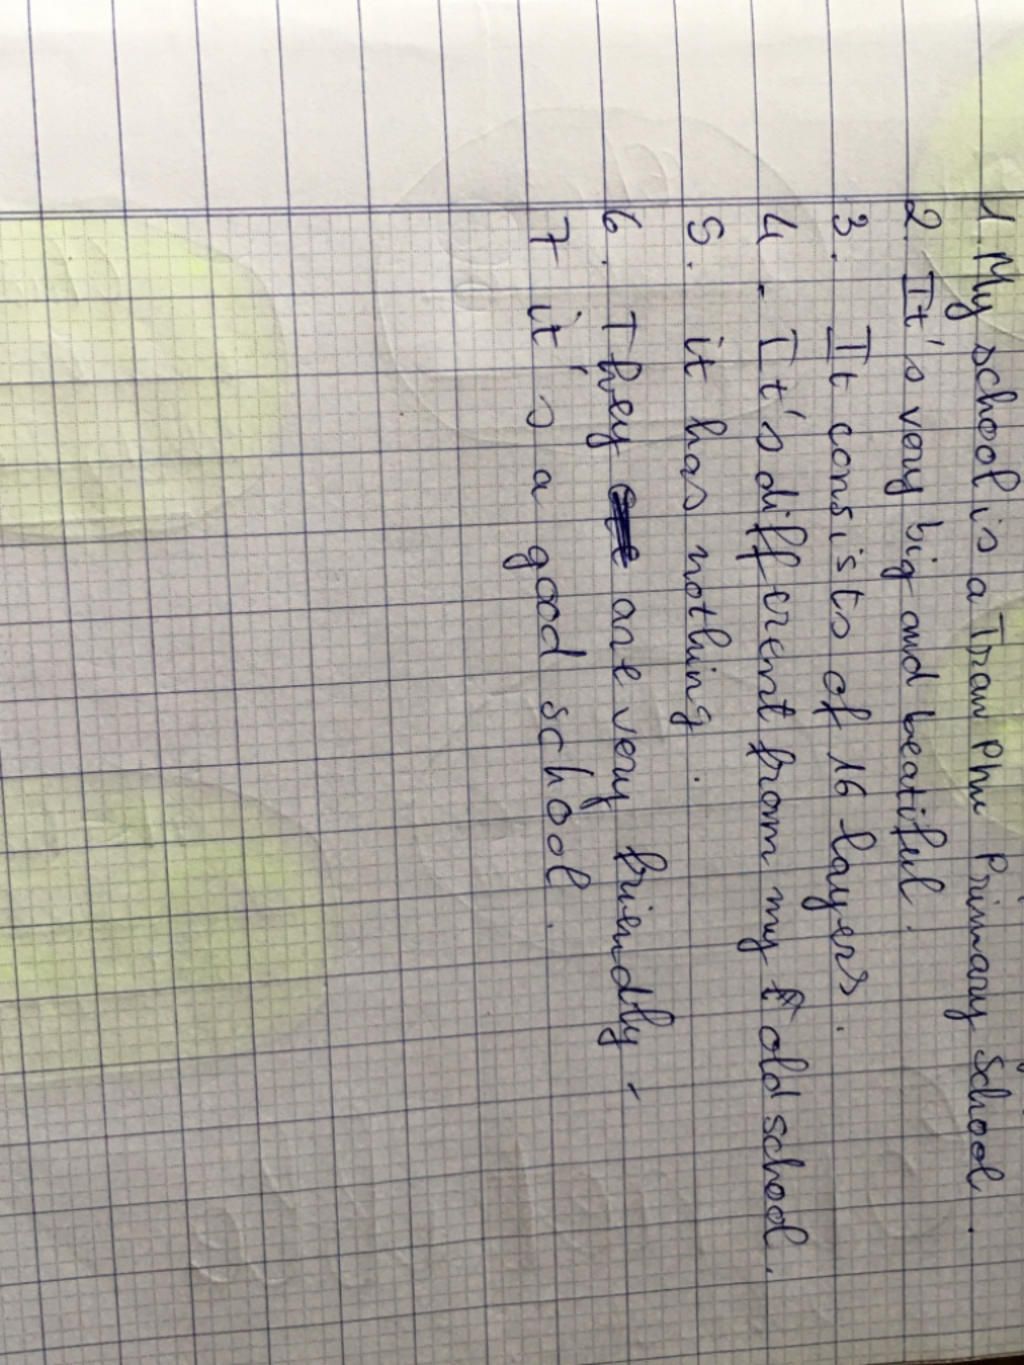 1. My school is a Tran Phu Primary School.
2. It's very big and beatiful.
3. It consists of 16 layers.
4. It's different from my old school.
5. it has nothing.
6. They are very friendly.
7 it's a good school.